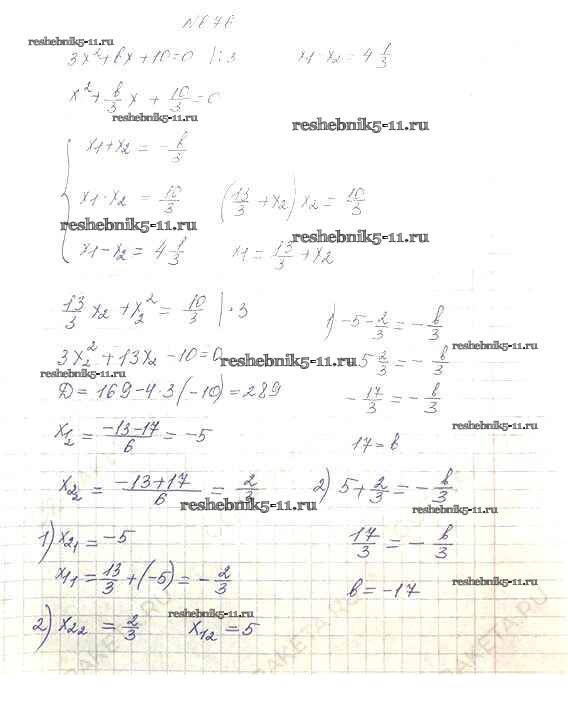 N676
reshebnik5-11.ru
3x² + bx + 10 = 0 |:3    x₁ - x₂ = 4 1/3
x² + b/3 x + 10/3 = 0
reshebnik5-11.ru
reshebnik5-11.ru
x₁ + x₂ = - b/3
x₁ · x₂ = 10/3    (13/3 + x₂) x₂ = 10/3
reshebnik5-11.ru
reshebnik5-11.ru
x₁ - x₂ = 4 1/3    x₁ = 13/3 + x₂
13/3 x₂ + x₂² = 10/3 | · 3
3x₂² + 13x₂ - 10 = 0
reshebnik5-11.ru
reshebnik5-11.ru
D = 169 - 4 · 3 (-10) = 289
x₁₂ = (-13 - 17)/6 = -5
x₂₂ = (-13 + 17)/6 = 2/3
reshebnik5-11.ru
1) x₂₁ = -5
x₁₁ = 13/3 + (-5) = - 2/3
reshebnik5-11.ru
2) x₂₂ = 2/3    x₁₂ = 5
1) -5 - 2/3 = - b/3
reshebnik5-11.ru
5 2/3 = - b/3
- 17/3 = - b/3
reshebnik5-11.ru
17 = b
2) 5 + 2/3 = - b/3
reshebnik5-11.ru
17/3 = - b/3
b = -17
reshebnik5-11.ru
RAKETA.RU
RAKETA.RU
RAKETA.RU